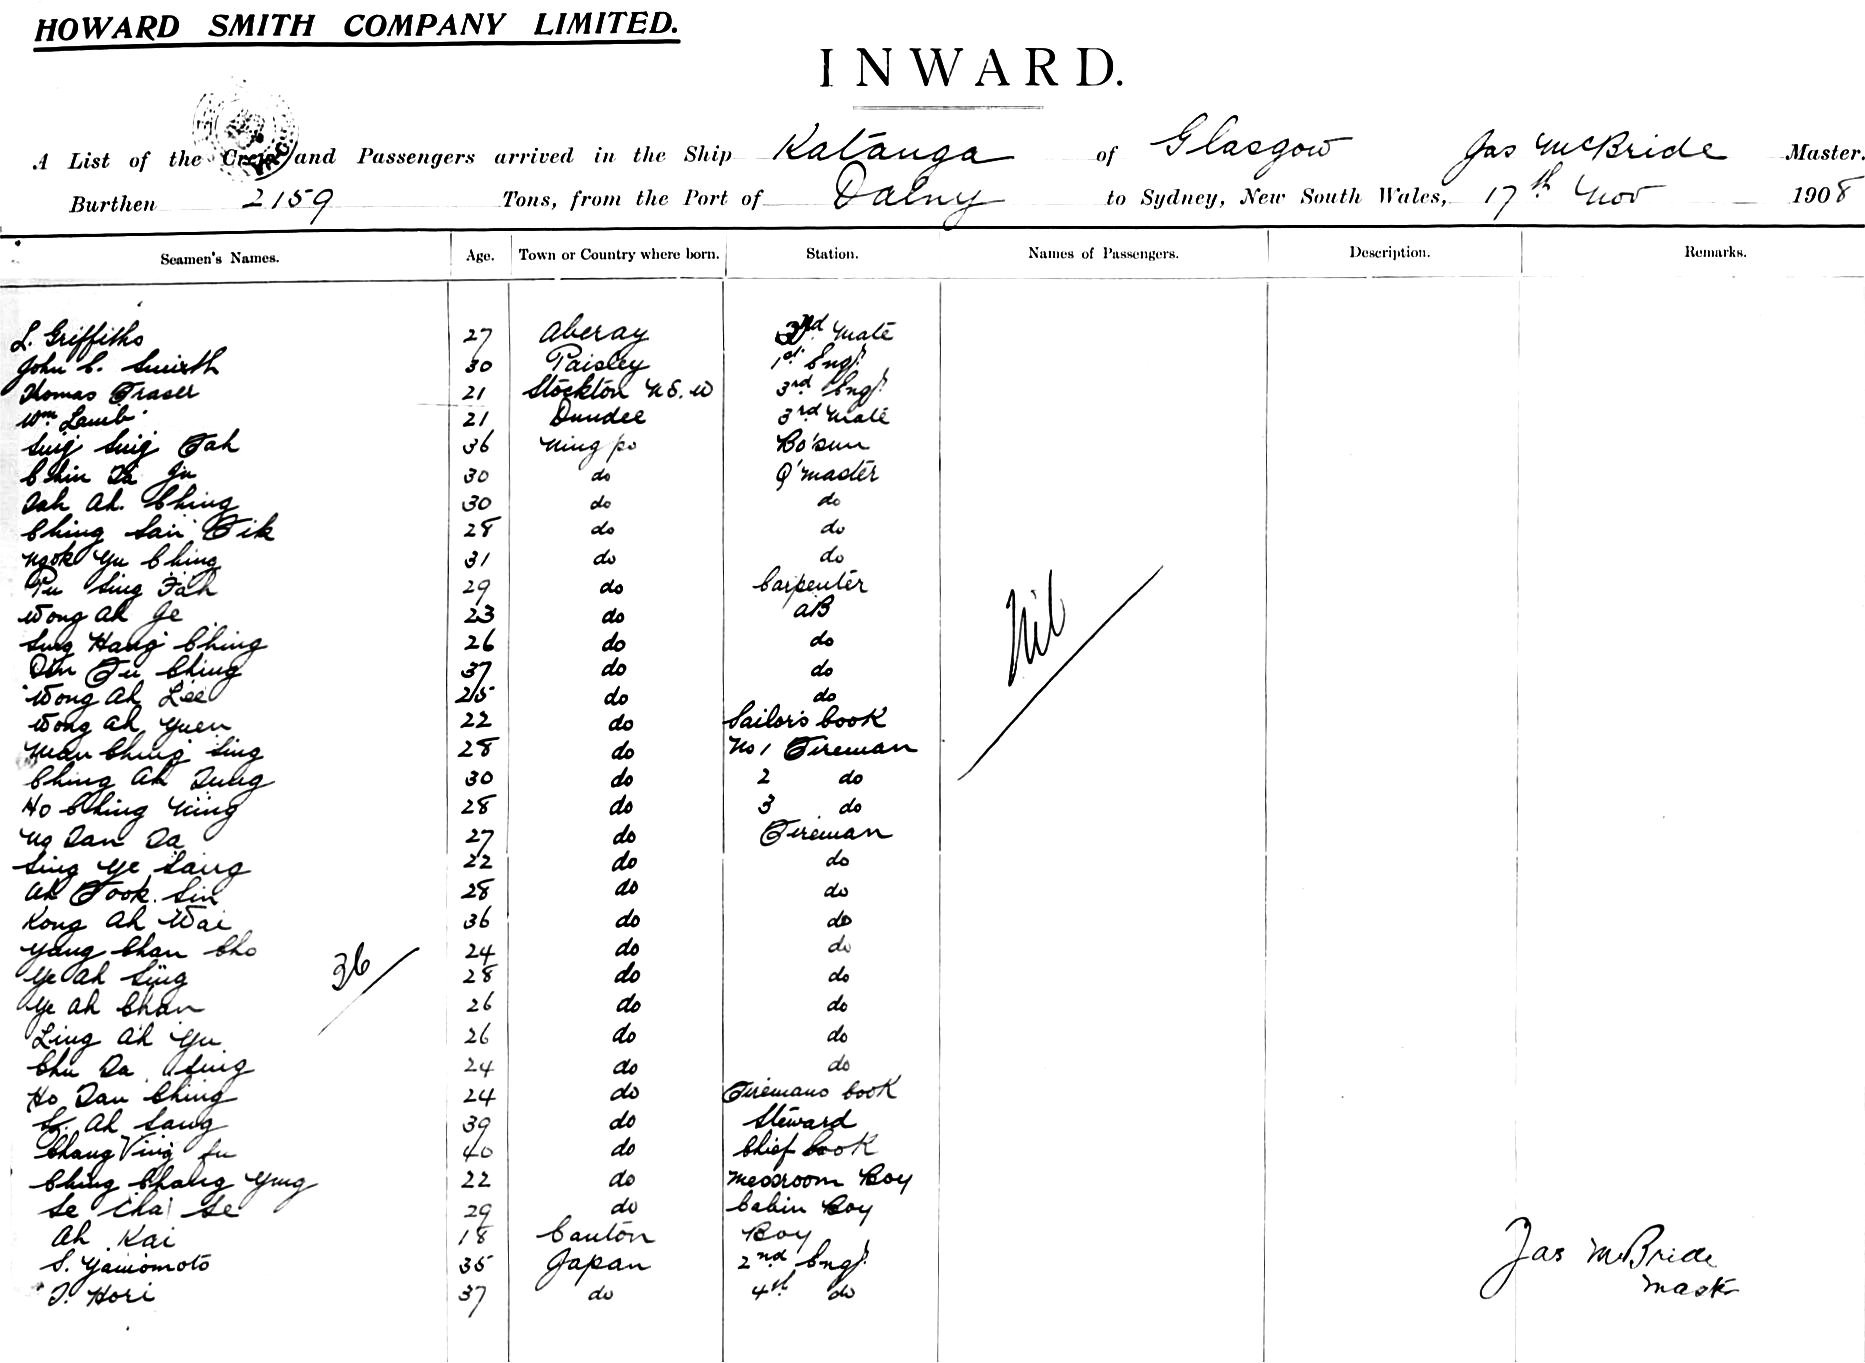 HOWARD SMITH COMPANY LIMITED.
INWARD.
A List of the Crew and Passengers arrived in the Ship Katanga of Glasgow Jas McBride Master.
Burthen 2159 Tons, from the Port of Dalny to Sydney, New South Wales, 17th Nov 1908
Seamen's Names. Age. Town or Country where born. Station. Names of Passengers. Description. Remarks.
L. Griffiths 27 Aberay mate
John C. Smith 30 Paisley 1st Engr.
Thomas Fraser 21 Stockton N.S.W 3rd Engr.
Wm Lamb 21 Dundee 3rd mate
Sing Sing Fah 36 Ningpo Bo'sun
Chin Da Ju 30 do Q'master
Dah Ah. Ching 30 do do
Ching San Fik 28 do do
Ngok Yu Ching 31 do do
Pu Sing Fah 29 do Carpenter
Wong Ah Je 23 do AB
Sung Hang Ching 26 do do
Fu Ching 37 do do
Wong Ah Lee 25 do do
Wong Ah Yuen 22 do Sailors Cook
Man Ching Sing 28 do No 1 Fireman
Ching Ah Dung 30 do 2 do
Ho Ching Ning 28 do 3 do
Ng Dan Da 27 do Fireman
Sing Ye Sang 22 do do
Ah Fook Sin 28 do do
Kong Ah Wai 36 do do
Yang Chan Cho 24 do do
Ye Ah Sing 28 do do
Ye Ah Chan 26 do do
Ling Ah Yu 26 do do
Chu Da Sing 24 do do
Ho Dan Ching 24 do Firemans Cook
Ah Sang 39 do Steward
Chang Ving Fu 40 do Chief Cook
Ching Chang Yung 22 do Messroom Boy
Se Cha Se 29 do Cabin Boy
Ah Kai 18 Canton Boy
S. Yamomoto 35 Japan 2nd Engr.
T. Hori 37 do 4th do
36
Nil
Jas McBride
Master